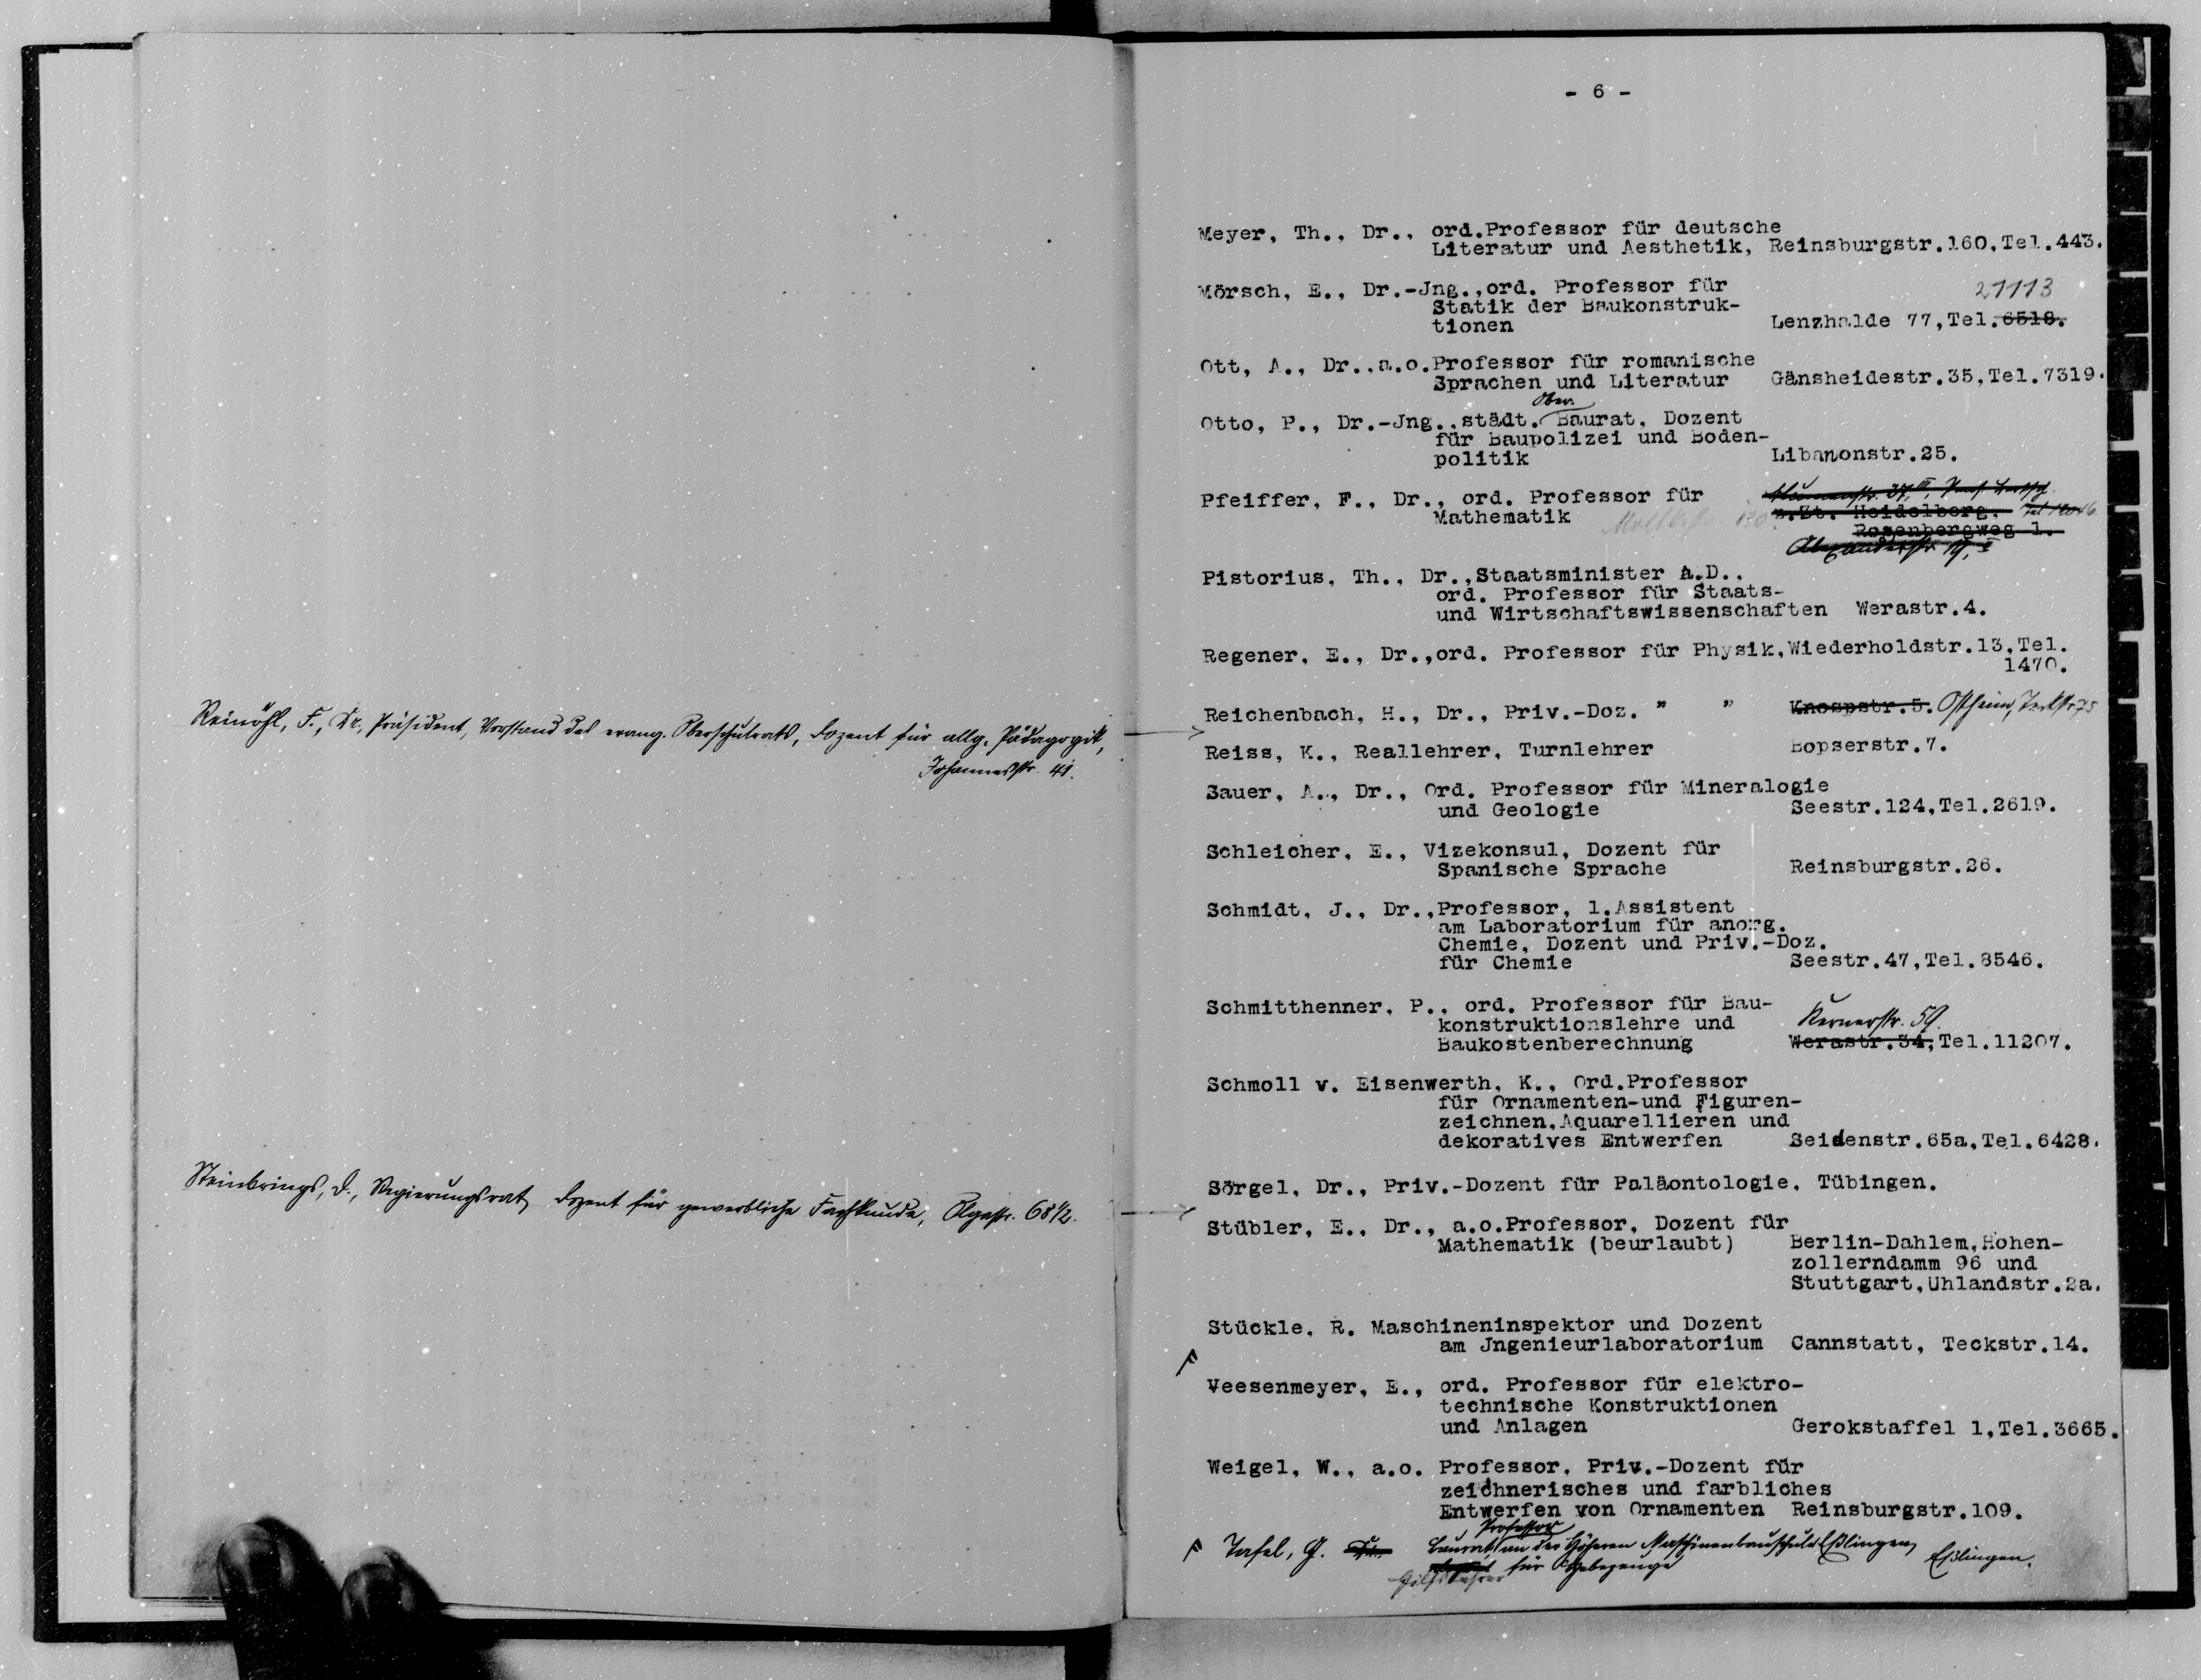 Reinöhl, F., Dr., Präsident, Vorstand des evang. Oberschulrats, Dozent für allg. Pädagogik,
Johannesstr. 41.
Steinbrings, D., Regierungsrat, Dozent für gewerbliche Fachkunde, Olgastr. 68 1/2.
- 6 -
Meyer, Th., Dr., ord.Professor für deutsche
Literatur und Aesthetik, Reinsburgstr.160,Tel.443.
21113
Mörsch, E., Dr.-Jng.,ord. Professor für
Statik der Baukonstruk-
tionen Lenzhalde 77,Tel.6518.
Ott, A., Dr.,a.o.Professor für romanische
Sprachen und Literatur Gänsheidestr.35,Tel.7319.
Ober.
Otto, P., Dr.-Jng.,städt. Baurat, Dozent
für Baupolizei und Boden-
politik Libanonstr.25.
Pfeiffer, F., Dr., ord. Professor für
Mathematik z.Zt. Heidelberg,
Rosenbergweg 1.
Alexanderstr. 19, II
Pistorius, Th., Dr.,Staatsminister A.D.,
ord. Professor für Staats-
und Wirtschaftswissenschaften Werastr.4.
Regener, E., Dr.,ord. Professor für Physik,Wiederholdstr.13,Tel.
1470.
Reichenbach, H., Dr., Priv.-Doz. " " Knospstr.5. Ostheim, Teckstr. 75
Reiss, K., Reallehrer, Turnlehrer Bopserstr.7.
Sauer, A., Dr., Ord. Professor für Mineralogie
und Geologie Seestr.124,Tel.2619.
Schleicher, E., Vizekonsul, Dozent für
Spanische Sprache Reinsburgstr.26.
Schmidt, J., Dr.,Professor, 1.Assistent
am Laboratorium für anorg.
Chemie, Dozent und Priv.-Doz.
für Chemie Seestr.47,Tel.8546.
Schmitthenner, P., ord. Professor für Bau-
konstruktionslehre und Kernerstr. 59.
Baukostenberechnung Werastr.34,Tel.11207.
Schmoll v. Eisenwerth, K., Ord.Professor
für Ornamenten-und Figuren-
zeichnen,Aquarellieren und
dekoratives Entwerfen Seidenstr.65a,Tel.6428.
Sörgel, Dr., Priv.-Dozent für Paläontologie, Tübingen.
Stübler, E., Dr., a.o.Professor, Dozent für
Mathematik (beurlaubt) Berlin-Dahlem,Hohen-
zollerndamm 96 und
Stuttgart,Uhlandstr.2a.
Stückle, R. Maschineninspektor und Dozent
am Jngenieurlaboratorium Cannstatt, Teckstr.14.
Veesenmeyer, E., ord. Professor für elektro-
technische Konstruktionen
und Anlagen Gerokstaffel 1,Tel.3665.
Weigel, W., a.o. Professor, Priv.-Dozent für
zeichnerisches und farbliches
Entwerfen von Ornamenten Reinsburgstr.109.
Professor
Tafel, G. Dr. Baurat, an der Höheren Maschinenbauschule Eßlingen, Eßlingen.
Hilfslehrer für Hebezeuge